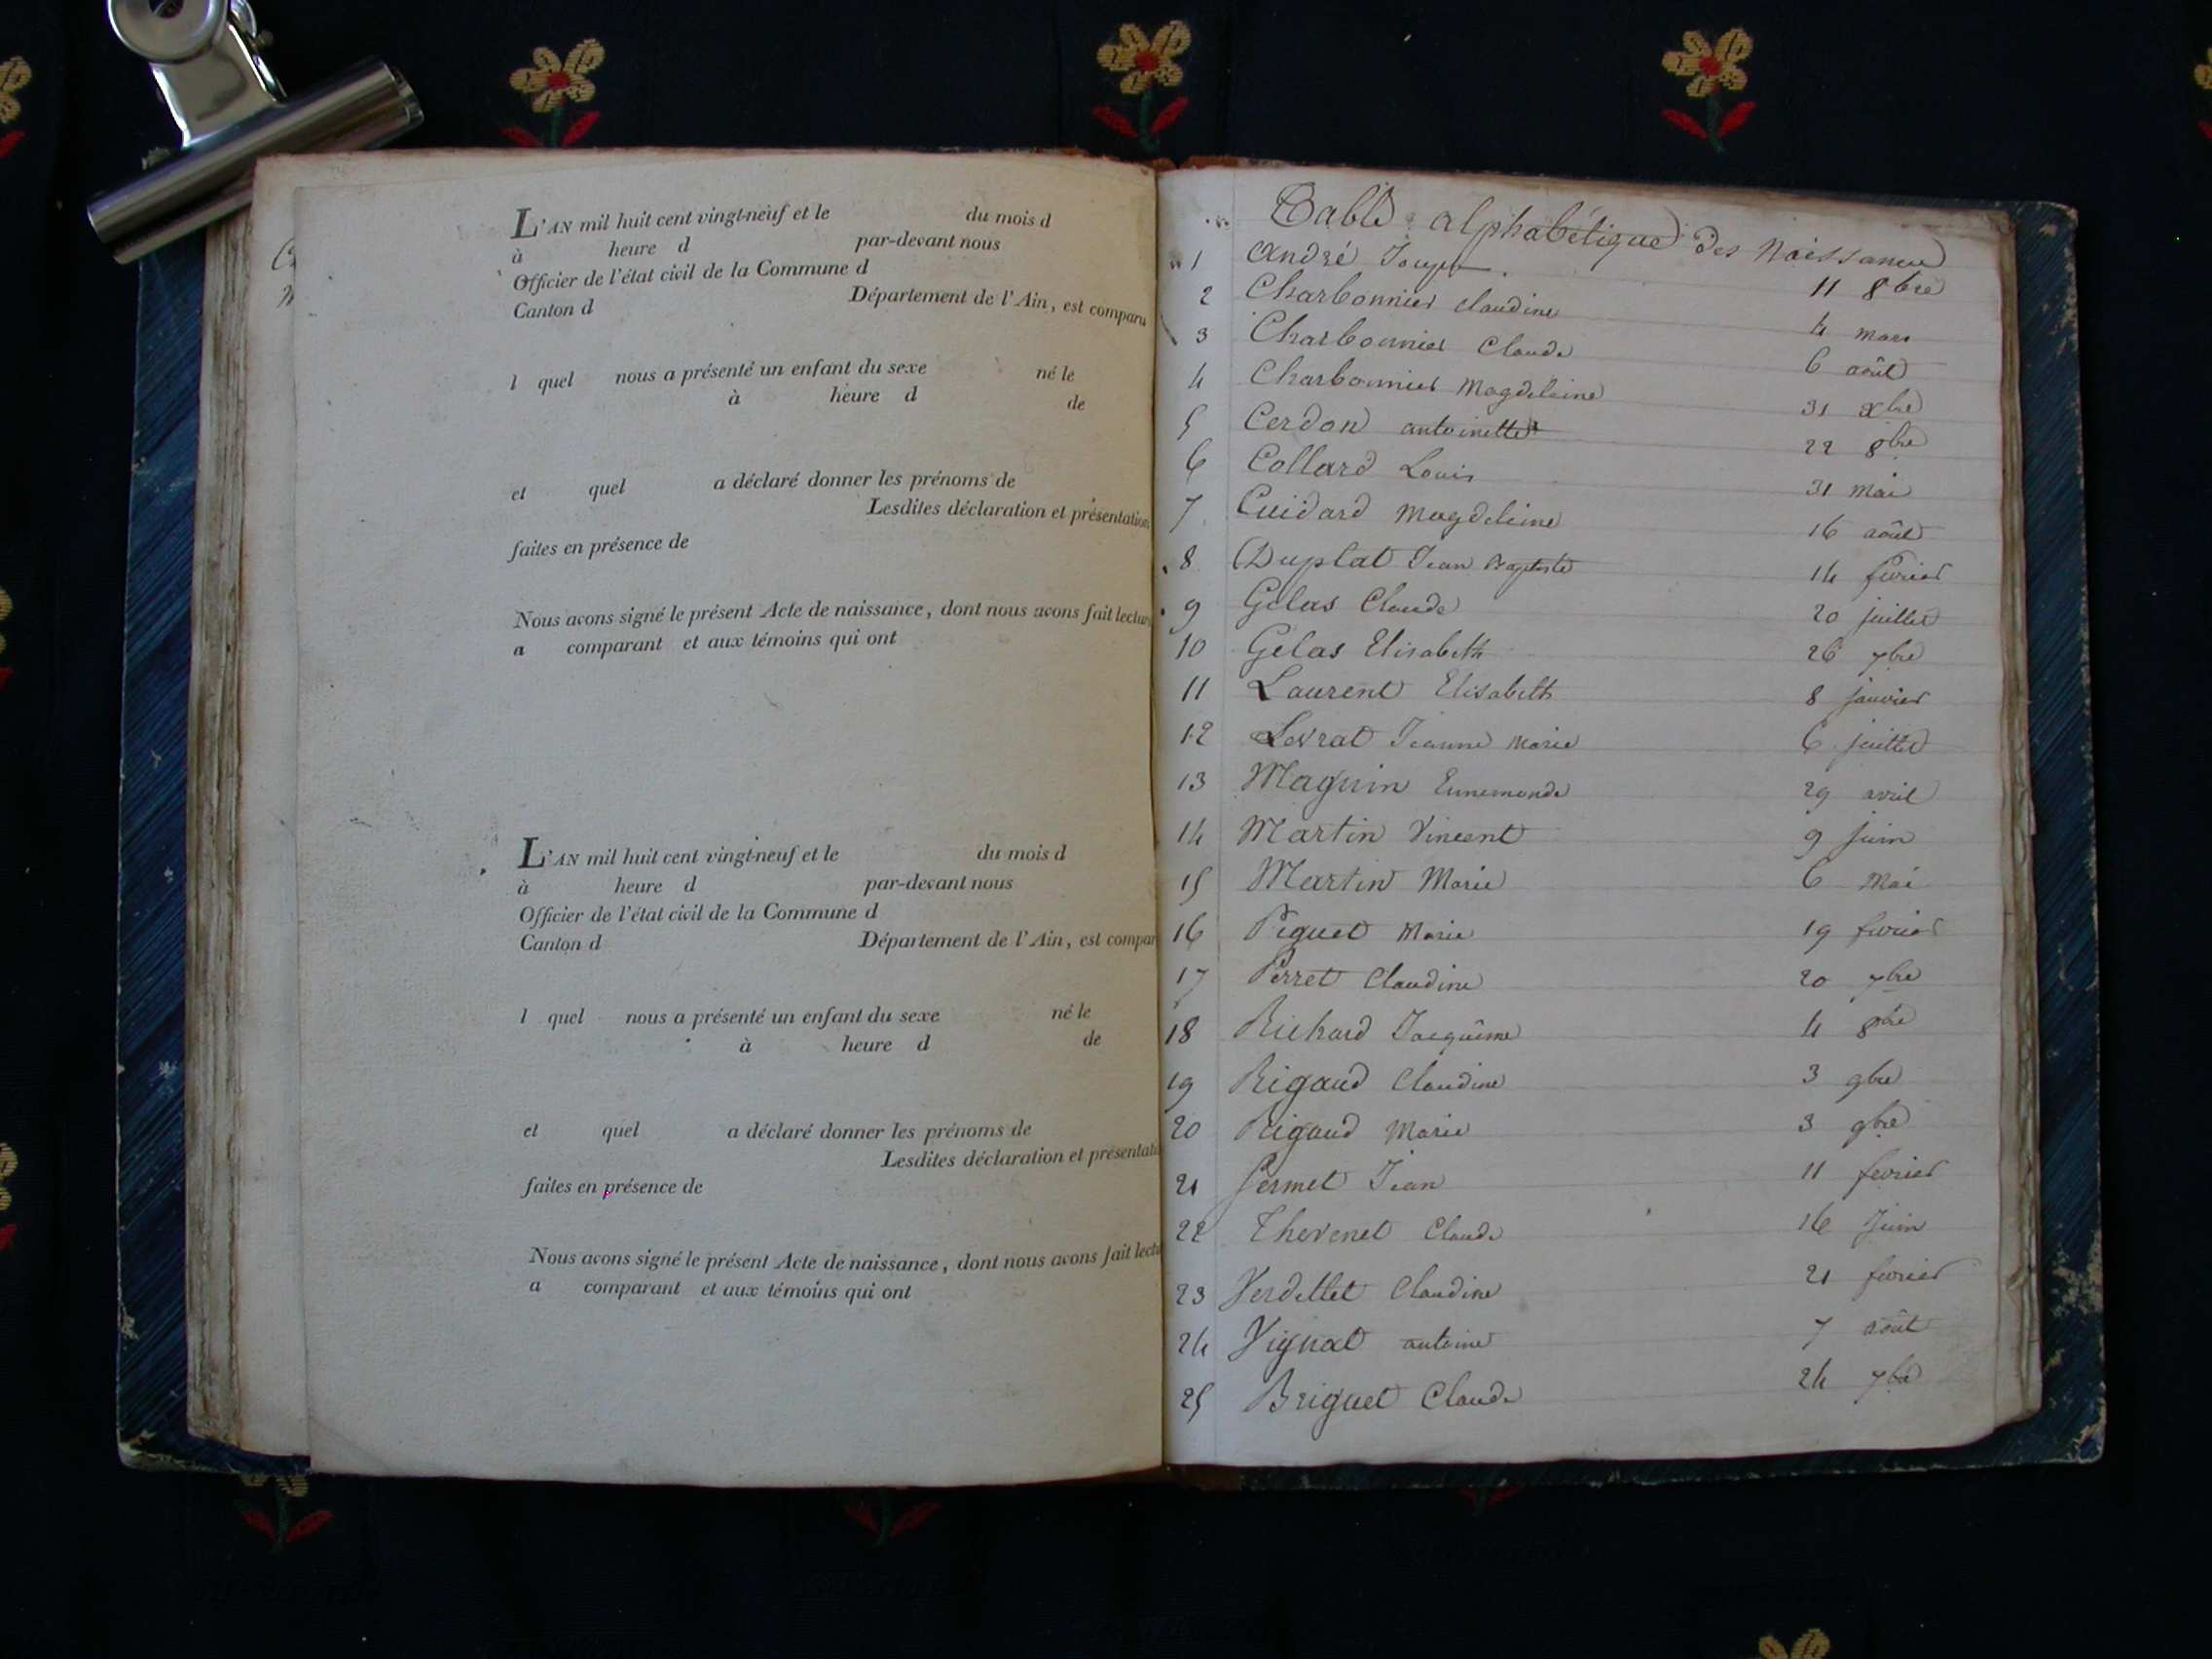 L'AN mil huit cent vingt-neuf et le du mois d
à heure d par-devant nous
Officier de l'état civil de la Commune d
Canton d Département de l'Ain, est comparu
l quel nous a présenté un enfant du sexe né le
à heure d de
et quel a déclaré donner les prénoms de
Lesdites déclaration et présentation
faites en présence de
Nous avons signé le présent Acte de naissance, dont nous avons fait lectur
a comparant et aux témoins qui ont
L'AN mil huit cent vingt-neuf et le du mois d
à heure d par-devant nous
Officier de l'état civil de la Commune d
Canton d Département de l'Ain, est compar
l quel nous a présenté un enfant du sexe né le
à heure d de
et quel a déclaré donner les prénoms de
Lesdites déclaration et présentati
faites en présence de
Nous avons signé le présent Acte de naissance, dont nous avons fait lectu
a comparant et aux témoins qui ont
Table alphabétique des Naissances
1 André 11 8bre
2 Charbonnier Claudine 4 mars
3 Charbonnier Claude 6 août
4 Charbonnier Magdeleine 31 xbre
5 Cerdon antoinette 22 8bre
6 Collard Louis 31 mai
7 Cuidard Magdeleine 16 août
8 Duplat Jean Baptiste 14 fevrier
9 Gelas Claude 20 juillet
10 Gelas Elisabeth 26 7bre
11 Laurent Elisabeth 8 janvier
12 Levrat Jeanne Marie 6 juillet
13 Maguin Ennemonde 29 avril
14 Martin Vincent 9 juin
15 Martin Marie 6 Mai
16 Piguet Marie 19 fevrier
17 Perret Claudine 20 7bre
18 Richard Jacquême 4 8bre
19 Rigaud Claudine 3 9bre
20 Rigaud Marie 3 9bre
21 Sermet Jean 11 fevrier
22 Thevenet Claude 16 Juin
23 Verdellet Claudine 21 fevrier
24 Vignat antoine 7 août
25 Briguet Claude 24 7bre